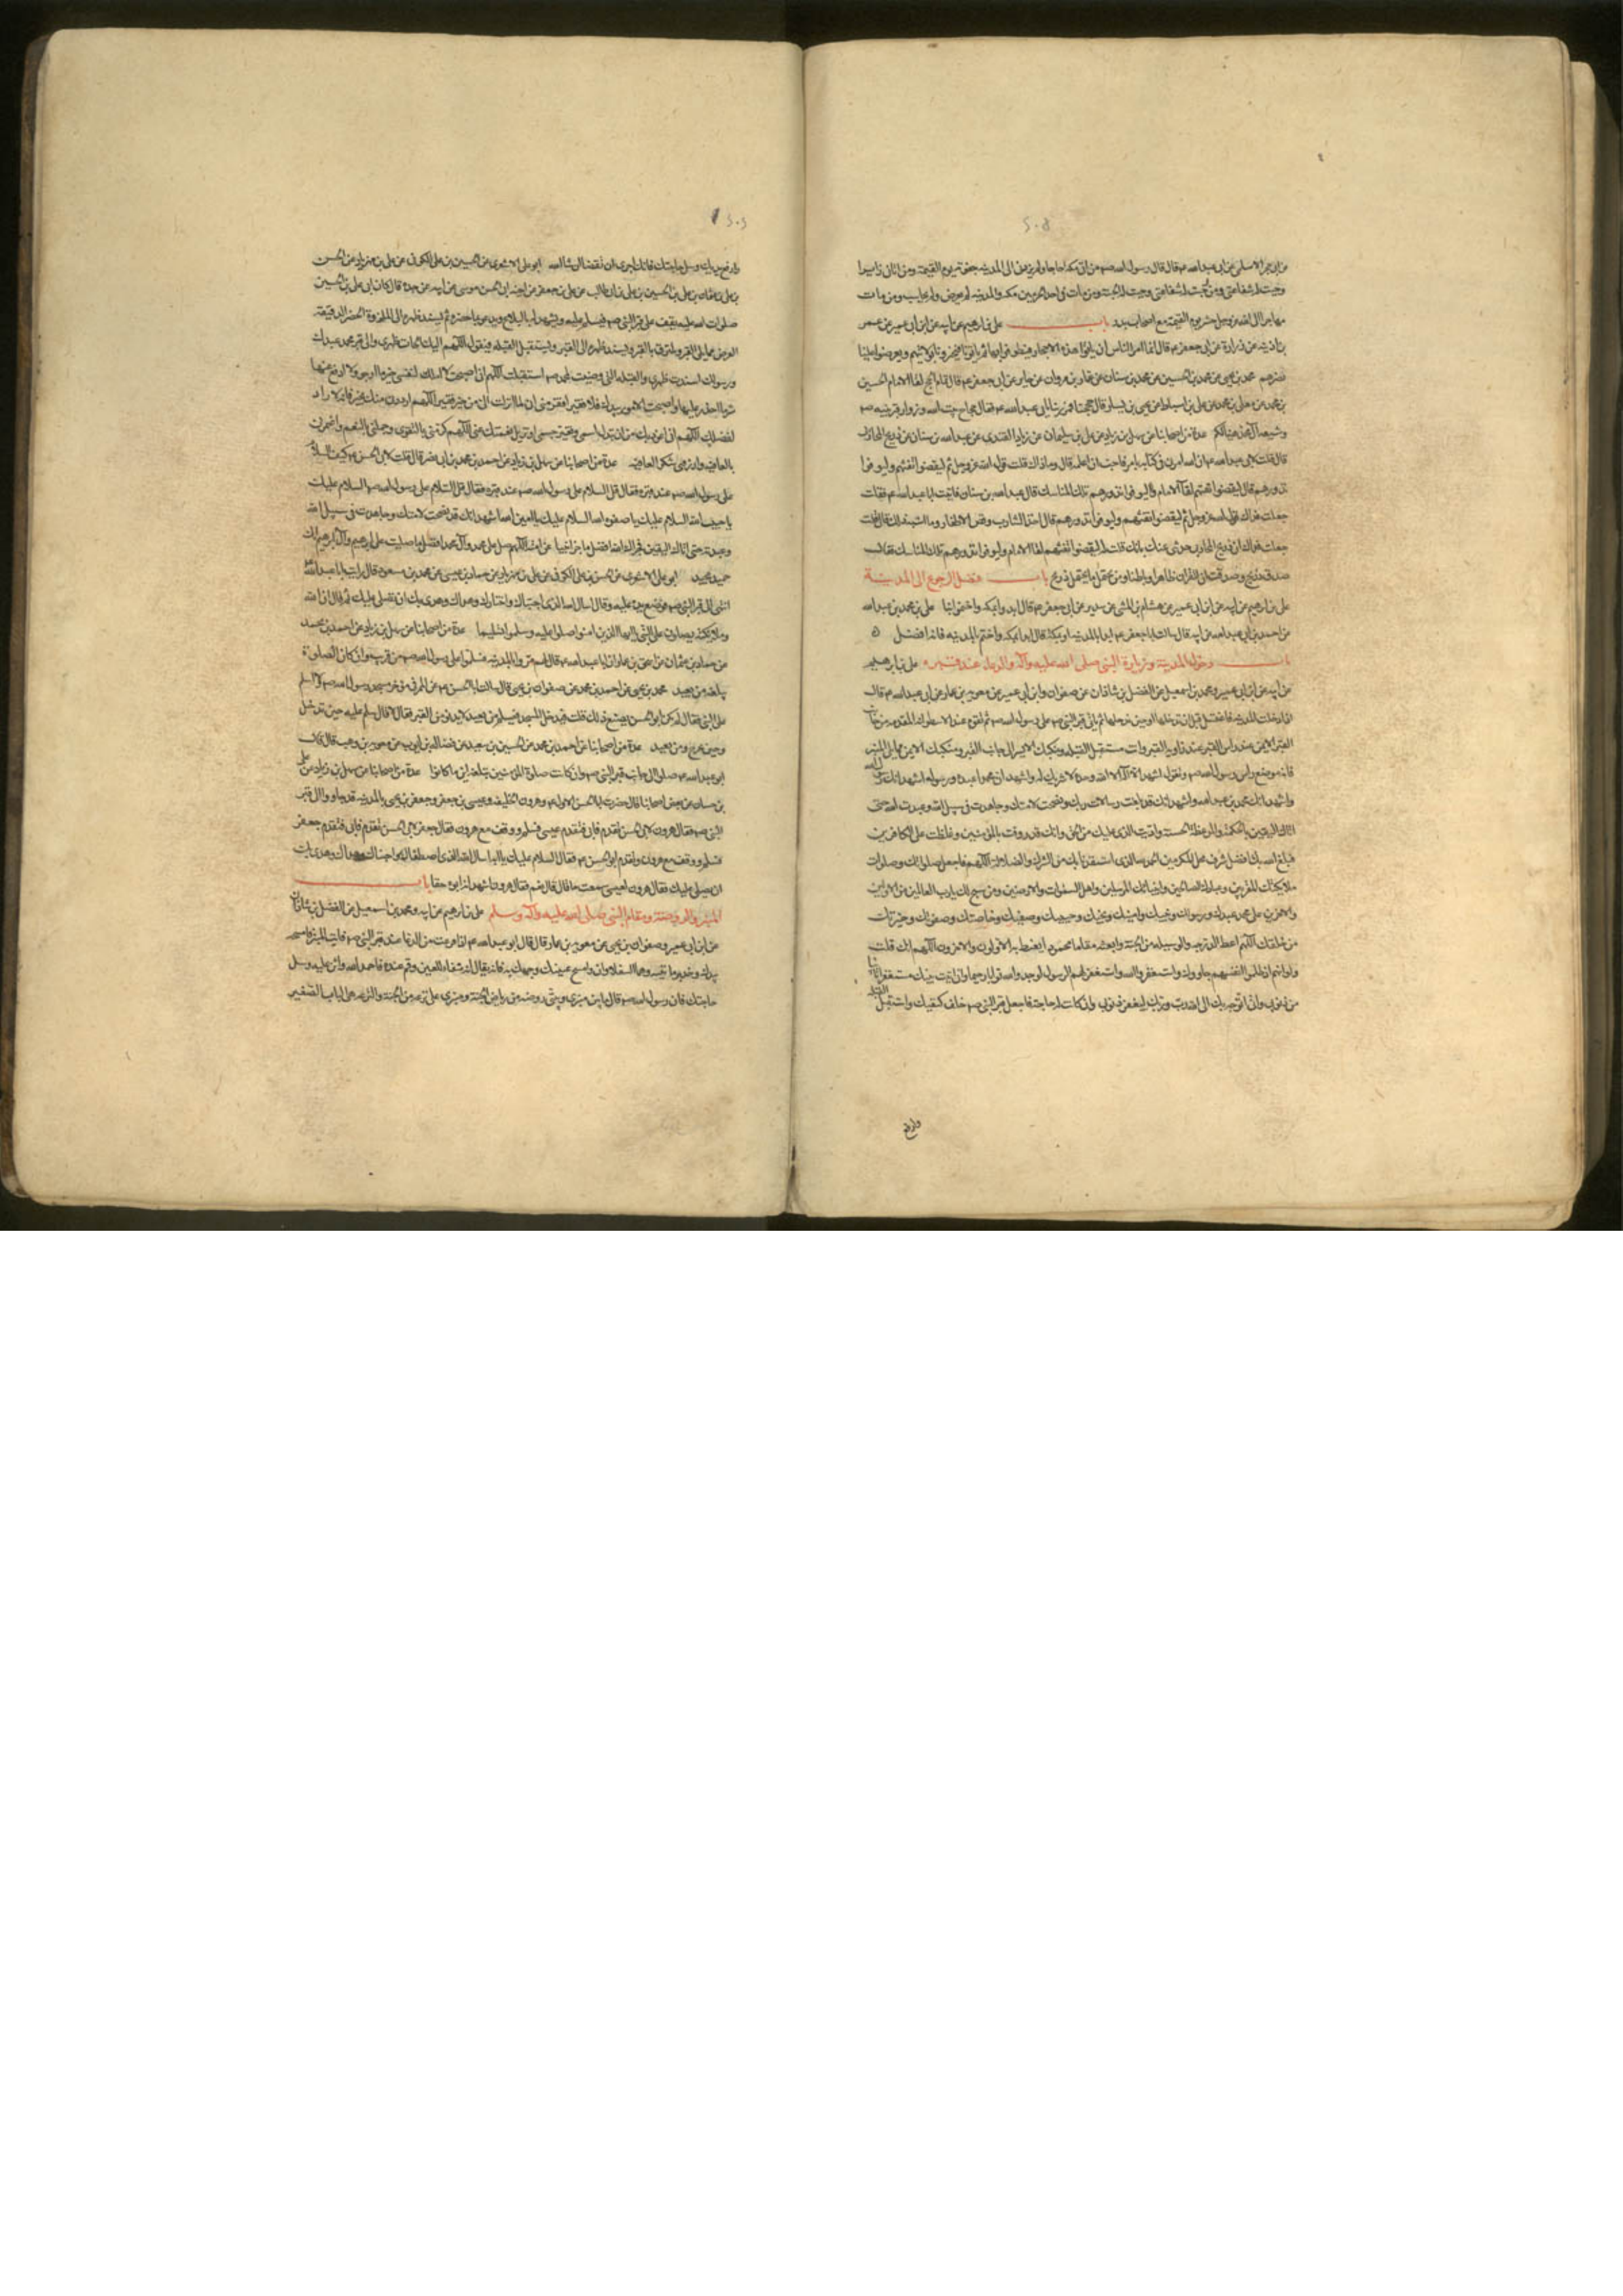 عن ابى حجر الاسلمى عن ابى عبدالله ع قال قال رسول الله ص من اتى مكة حاجا ولم يزرنى الى المدينه جفوته يوم القيمة ومن اتانى زايرا
وجبت له شفاعتى ومن وجبت له شفاعتى وجبت له الجنة ومن مات فى احد الحرمين مكه والمدينه لم يعرض ولم يحاسب ومن مات
مهاجرا الى الله عز وجل حشر يوم القيمة مع اصحاب بدر باب على بن ابرهيم عن ابيه عن ابن ابى عمير عن عمر
بن اذينه عن زرارة عن ابى جعفر ع قال انما امر الناس ان ياتوا هذه الاحجار فيطوفوا بها ثم ياتونا فيخبرونا بولايتهم ويعرضوا علينا
نصرهم محمد بن يحيى عن محمد بن الحسين عن محمد بن سنان عن عمار بن مروان عن جابر عن ابى جعفر ع قال تمام الحج لقا الامام الحسين
بن محمد عن معلى بن محمد عن على بن اسباط عن يحيى بن يسار قال حججنا فمررنا بابى عبدالله ع فقال حاج بيت الله وزوار قبر نبيه ص
وشيعة آل محمد هنيئا لكم عدة من اصحابنا عن سهل بن زياد عن على بن سليمان عن زياد القندى عن عبدالله بن سنان عن ذريح المحاربى
قال قلت لابى عبدالله ع ان الله امرنى فى كتابه بامر فاحب ان اعلمه قال وما ذاك قلت قول الله عز وجل ثم ليقضوا تفثهم وليوفوا
نذورهم قال ليقضوا تفثهم لقآ الامام وليوفوا نذورهم تلك المناسك قال عبدالله بن سنان فاتيت ابا عبدالله ع فقلت
جعلت فداك قول الله عز وجل ثم ليقضوا تفثهم وليوفوا نذورهم قال اخذ الشارب وقص الاظفار وما اشبه ذلك قال قلت
جعلت فداك ان ذريح المحاربى حدثنى عنك بانك قلت له ليقضوا تفثهم لقا الامام وليوفوا نذورهم تلك المناسك فقال
صدق ذريح وصدقت ان للقران ظاهرا وباطنا ومن يحتمل ما يحتمل ذريح باب فضل الرجوع الى المدينة
على بن ابرهيم عن ابيه عن ابن ابى عمير عن هشام بن المثنى عن سدير عن ابى جعفر ع قال ابدوا بمكه واختموا بنا على بن محمد بن عبدالله
عن احمد بن ابى عبدالله عن ابيه قال سالت ابا جعفر ع ابدا بالمدينه او بمكة قال ابدا بمكه واختم بالمدينه فانه افضل
باب دخول المدينة وزيارة النبى صلى الله عليه وآله والدعاء عند قبره على بن ابرهيم
عن ابيه عن ابن ابى عمير ومحمد بن اسمعيل عن الفضل بن شاذان عن صفوان وابن ابى عمير عن معويه بن عمار عن ابى عبدالله ع قال
اذا دخلت المدينه فاغتسل قبل ان تدخلها او حين تدخلها ثم تاتى قبر النبى ص ثم تقوم عند الاسطوانة المقدمه من جانب
القبر الايمن عند راس القبر عند زاويه القبر وانت مستقبل القبله ومنكبك الايسر الى جانب القبر ومنكبك الايمن مما يلى المنبر
فانه موضع راس رسول الله ص وتقول اشهد ان لا آله الا الله وحده لا شريك له واشهد ان محمدا عبده ورسوله اشهد انك رسول الله
واشهد انك محمد بن عبدالله واشهد انك قد بلغت رسالات ربك ونصحت لامتك وجاهدت فى سبيل الله وعبدت الله حتى
اتاك اليقين بالحكمة والموعظة الحسنة واديت الذى عليك من الحق وانك قد رؤفت بالمؤمنين وغلظت على الكافرين
فبلغ الله بك افضل شرف محل المكرمين الحمد لله الذى استنقذنا بك من الشرك والضلالة اللهم فاجعل صلواتك وصلوات
ملايكتك المقربين وعبادك الصالحين وانبيائك المرسلين واهل السموات والارضين ومن سبح لك يا رب العالمين من الاولين
والاخرين على محمد عبدك ورسولك ونبيك وامينك ونجيك وحبيبك وصفيك وخاصتك وصفوتك وخيرتك
من خلقك اللهم اعطه الدرجه والوسيله من الجنة وابعثه مقاما محمودا يغبطه به الاولون والاخرون اللهم انك قلت
ولو انهم اذ ظلموا انفسهم جاؤوك فاستغفروا الله واستغفر لهم الرسول لوجدوا الله توابا رحيما وانى اتيت نبيك مستغفرا تايبا
من ذنوبى وانى اتوجه بك الى الله ربى وربك ليغفر ذنوبى وان كانت لك حاجة فاجعل قبر النبى ص خلف كتفيك واستقبل القبله
وارفع
وارفع يديك وسل حاجتك فانك احرى ان تقضى ان شاء الله ابو على الاشعرى عن الحسن بن على الكوفى عن على بن مهزيار عن الحسن
بن على بن عثمان بن على بن الحسين بن على بن ابى طالب عن على بن جعفر عن اخيه ابى الحسن موسى عن ابيه عن جده قال كان ابى على بن الحسين
صلوات الله عليه يقف على قبر النبى ص فيسلم عليه ويشهد له بالبلاغ ويدعو بما حضره ثم يسند ظهره الى المروة الخضرا الدقيقة
العرض مما يلى القبر ويلتزق بالقبر ويسند ظهره الى القبر ويستقبل القبله فيقول اللهم اليك الجات ظهرى والى قبر محمد عبدك
ورسولك اسندت ظهرى والقبله التى رضيت لمحمد ص استقبلت اللهم انى اصبحت لا املك لنفسى خير ما ارجو ولا ادفع عنها
شر ما احذر عليها واصبحت الامور بيدك فلا فقير افقر منى انى لما انزلت الى من خير فقير اللهم ارددنى منك بخير فانه لا راد
لفضلك اللهم انى اعوذ بك من ان تبدل اسمى وتغير جسمى او تزيل نعمتك عنى اللهم كرمنى بالتقوى وجملنى بالنعم واغمرنى
بالعافيه وارزقنى شكر العافيه عدة من اصحابنا عن سهل بن زياد عن احمد بن محمد بن ابى نصر قال قلت لابى الحسن ع كيف السلام
على رسول الله ص عند قبره فقال قل السلام على رسول الله ص السلام عليك
يا حبيب الله السلام عليك يا صفوة الله السلام عليك يا امين الله اشهد انك قد نصحت لامتك وجاهدت فى سبيل الله
وعبدته حتى اتاك اليقين فجزاك الله افضل ما جزى نبيا عن امته اللهم صل على محمد وآل محمد افضل ما صليت على ابرهيم وآل ابرهيم انك
حميد مجيد ابو على الاشعرى عن الحسن بن على الكوفى عن على بن مهزيار عن حماد بن عيسى عن محمد بن مسعود قال رايت ابا عبدالله
انتهى الى قبر النبى ص فوضع يده عليه وقال اسال الله الذى اجتباك واختارك وهداك وهدى بك ان يصلى عليك ثم قال ان الله
وملايكته يصلون على النبى يا ايها الذين امنوا صلوا عليه وسلموا تسليما عدة من اصحابنا عن سهل بن زياد عن احمد بن محمد
عن حماد بن عثمان عن اسحق بن عمار ان ابا عبدالله ع قال لهم مروا بالمدينه فسلموا على رسول الله ص من قريب وان كان الصلوة
تبلغه من بعيد محمد بن يحيى عن احمد بن محمد عن صفوان بن يحيى قال سالت ابا الحسن ع عن الممر فى مؤخر مسجد رسول الله ص ولا اسلم
على النبى فقال لم يكن ابو الحسن يصنع ذلك قلت فيدخل المسجد فيسلم من بعيد لا يدنو من القبر فقال لا قال سلم عليه حين تدخل
وحين تخرج ومن بعيد عدة من اصحابنا عن احمد بن محمد عن الحسين بن سعيد عن فضاله بن ايوب عن معويه بن وهب قال قال
ابو عبدالله ع صلوا الى جانب قبر النبى ص وان كانت صلوة المؤمنين تبلغه اين ما كانوا عدة من اصحابنا عن سهل بن زياد عن على
بن حسان عن بعض اصحابنا قال حضرت ابا الحسن الاول ع وهرون الخليفه وعيسى بن جعفر وجعفر بن يحيى بالمدينه قد جاؤوا الى قبر
النبى ص فقال هرون لابى الحسن تقدم فابى فتقدم عيسى فسلم ووقف مع هرون فقال جعفر لابى الحسن تقدم فابى فتقدم جعفر
فسلم ووقف مع هرون وتقدم ابو الحسن ع فقال السلام عليك يا ابه اسال الله الذى اصطفاك واجتباك وهداك وهدى بك
ان يصلى عليك فقال هرون لعيسى سمعت ما قال قال نعم فقال هرون اشهد انه ابوه حقا باب
المنبر والروضة ومقام النبى صلى الله عليه وآله وسلم على بن ابرهيم عن ابيه ومحمد بن اسمعيل عن الفضل بن شاذان
عن ابن ابى عمير وصفوان بن يحيى عن معويه بن عمار قال قال ابو عبدالله ع اذا فرغت من الدعا عند قبر النبى ص فايت المنبر فامسحه
بيدك وخذ برمانتيه وهما السفلاوان وامسح عينيك ووجهك به فانه يقال انه شفاء للعين وقم عنده فاحمد الله واثن عليه وسل
حاجتك فان رسول الله ص قال ما بين منبرى وبيتى روضة من رياض الجنة ومنبرى على ترعه من ترع الجنة والترعه هى الباب الصغير